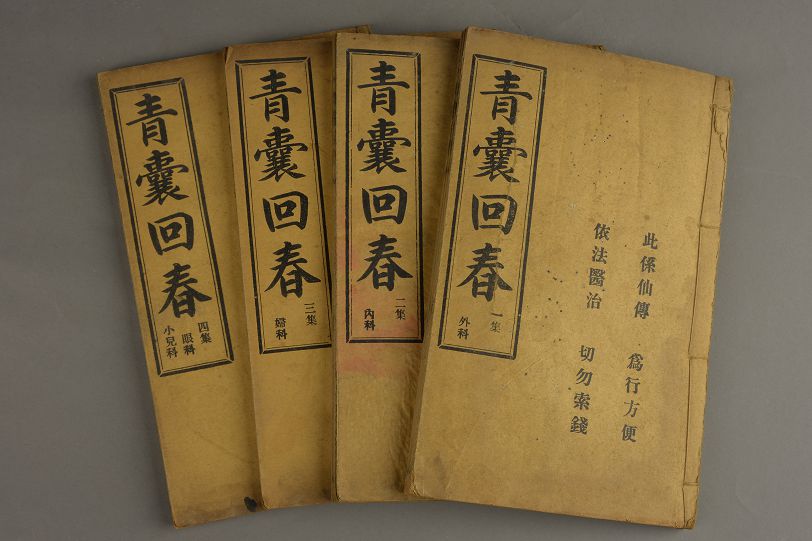 此係仙傳 為行方便
依法醫治 切勿索錢
青囊回春
一集
外科
青囊回春
二集
內科
青囊回春
三集
婦科
青囊回春
四集
眼科
小兒科